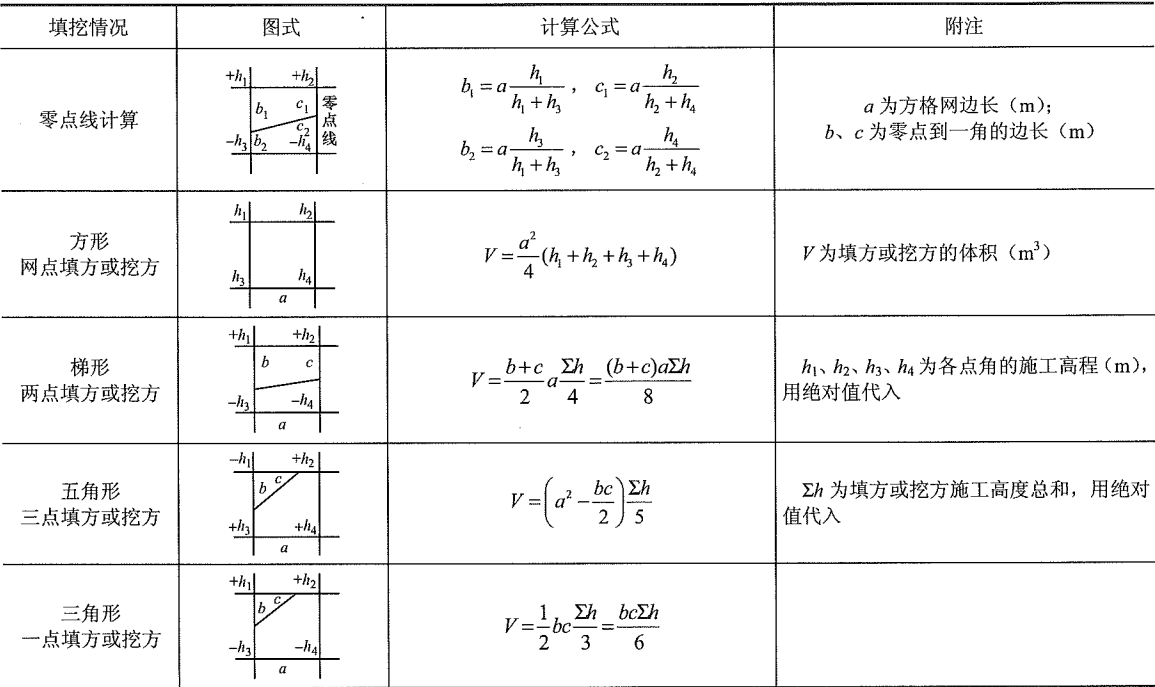 填挖情况 图式 计算公式 附注
零点线计算
+h₁ +h₂
b₁ c₁
c₂
−h₃ b₂ −h₄
零点线
b₁ = a h₁/(h₁+h₃) , c₁ = a h₂/(h₂+h₄)
b₂ = a h₃/(h₁+h₃) , c₂ = a h₄/(h₂+h₄)
a 为方格网边长（m）；
b、c 为零点到一角的边长（m）
方形
网点填方或挖方
h₁ h₂
h₃ h₄
a
V = a²/4 (h₁+h₂+h₃+h₄)
V 为填方或挖方的体积（m³）
梯形
两点填方或挖方
+h₁ +h₂
b c
−h₃ −h₄
a
V = (b+c)/2 a Σh/4 = (b+c)aΣh/8
h₁、h₂、h₃、h₄ 为各点角的施工高程（m），
用绝对值代入
五角形
三点填方或挖方
−h₁ +h₂
b c
+h₃ +h₄
a
V = (a² − bc/2) Σh/5
Σh 为填方或挖方施工高度总和，用绝对
值代入
三角形
一点填方或挖方
+h₁ +h₂
b c
−h₃ −h₄
a
V = 1/2 bc Σh/3 = bcΣh/6